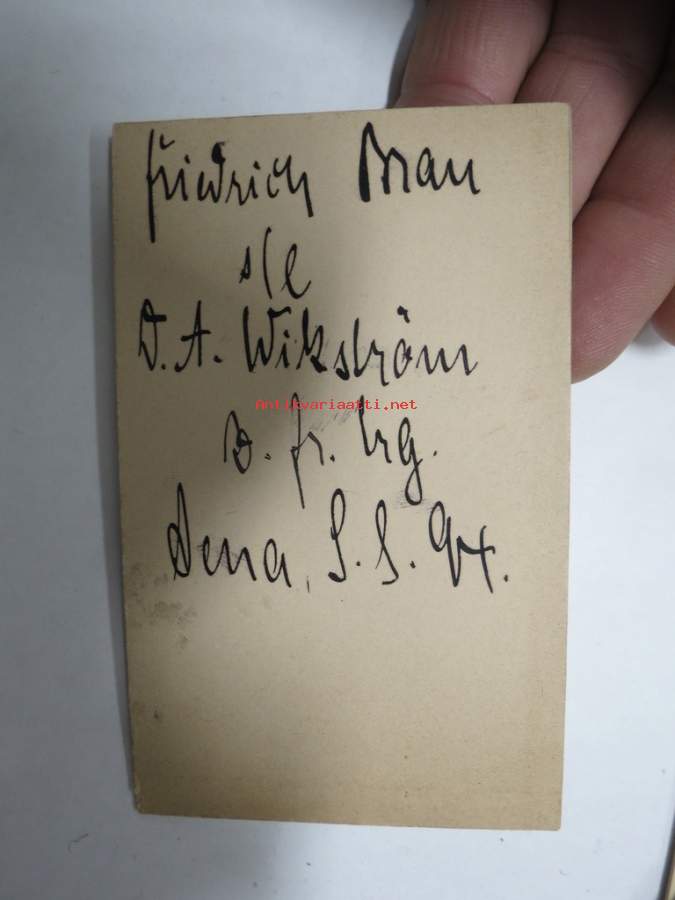 Friedrich Brau
s/e
D. A. Wikström
z. fr. Erg.
Jena, S. S. 94.
Antikvariaatti.net